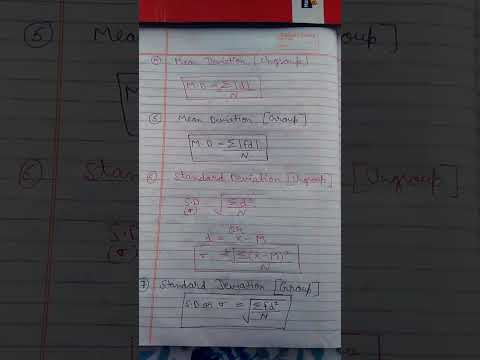 ④ Mean Deviation [Ungroup]
M.D = Σ|d| / N
⑤ Mean Deviation [Group]
M.D = Σ|fd| / N
⑥ Standard Deviation [Ungroup]
S.D (σ) √Σd² / N
d = x - M
σ = √Σ(x-M)² / N
7) Standard Deviation [Group]
S.D or σ = √Σfd² / N